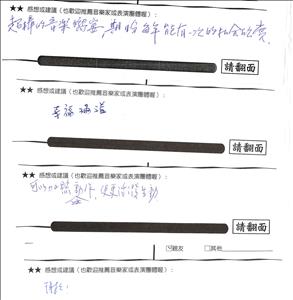 ★★ 感想或建議（也歡迎推薦音樂家或表演團體喔）：
超棒的音樂饗宴，期盼每年能有一次的机会欣賞。
請翻面
★★ 感想或建議（也歡迎推薦音樂家或表演團體喔）：
幸福滿溢
請翻面
★★ 感想或建議（也歡迎推薦音樂家或表演團體喔）：
可以加強 使更活潑生動
請翻面
親友 □其他
★★ 感想或建議（也歡迎推薦音樂家或表演團體喔）：